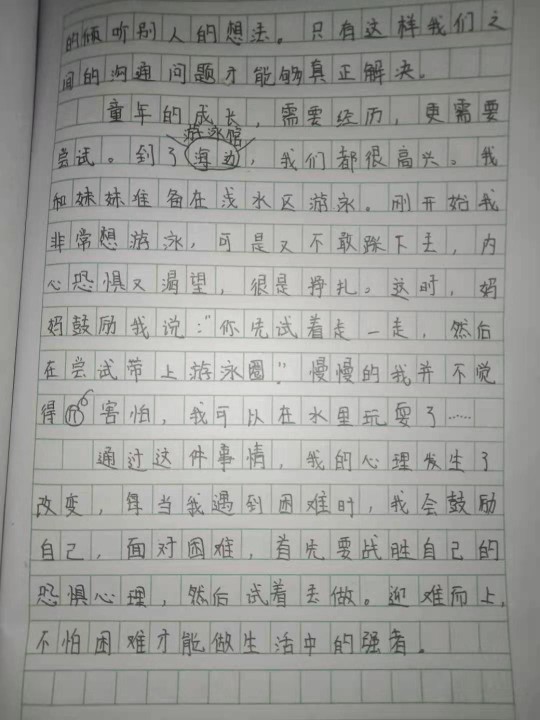 的倾听别人的想法。只有这样我们之
间的沟通问题才能够真正解决。
童年的成长，需要经历，更需要
游泳馆
尝试。到了海边，我们都很高兴。我
和妹妹准备在浅水区游泳。刚开始我
非常想游泳，可是又不敢踩下去，内
心恐惧又渴望，很是挣扎。这时，妈
妈鼓励我说："你先试着走一走，然后
在尝试带上游泳圈"。慢慢的我并不觉
得害怕，我可以在水里玩耍了……
通过这件事情，我的心理发生了
改变，每当我遇到困难时，我会鼓励
自己，面对困难，首先要战胜自己的
恐惧心理，然后试着去做。迎难而上，
不怕困难才能做生活中的强者。